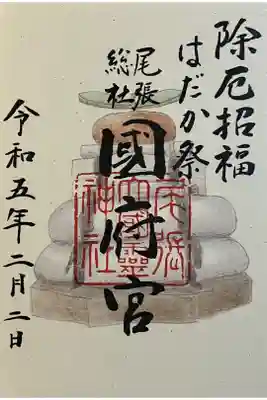 除厄招福
はだか祭
尾張
総社
國府宮
尾張
大國靈
神社
令和五年二月二日